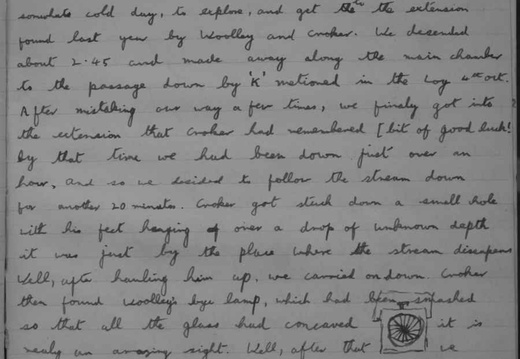 somolate cold day, to explore, and get to the extension
found last year by Woolley and Croker. We desended
about 2.45 and made away along the main chamber
to the passage down by 'K' metioned in the log 4th oct.
After mistaking our way a few times, we finely got into
the extension that Croker had remembered [bit of good luck!
by that time we had been down just over an
hour, and so we decided to follow the stream down
for another 20 minutes. Croker got stuck down a small hole
with his feet hanging over a drop of unknown depth
it was just by the place where the stream dissapears
Well, after hauling him up, we carried on down. Croker
then found Woolley's bye lamp, which had been smashed
so that all the glass had concaved it is
realy an amazing sight. Well, after that we